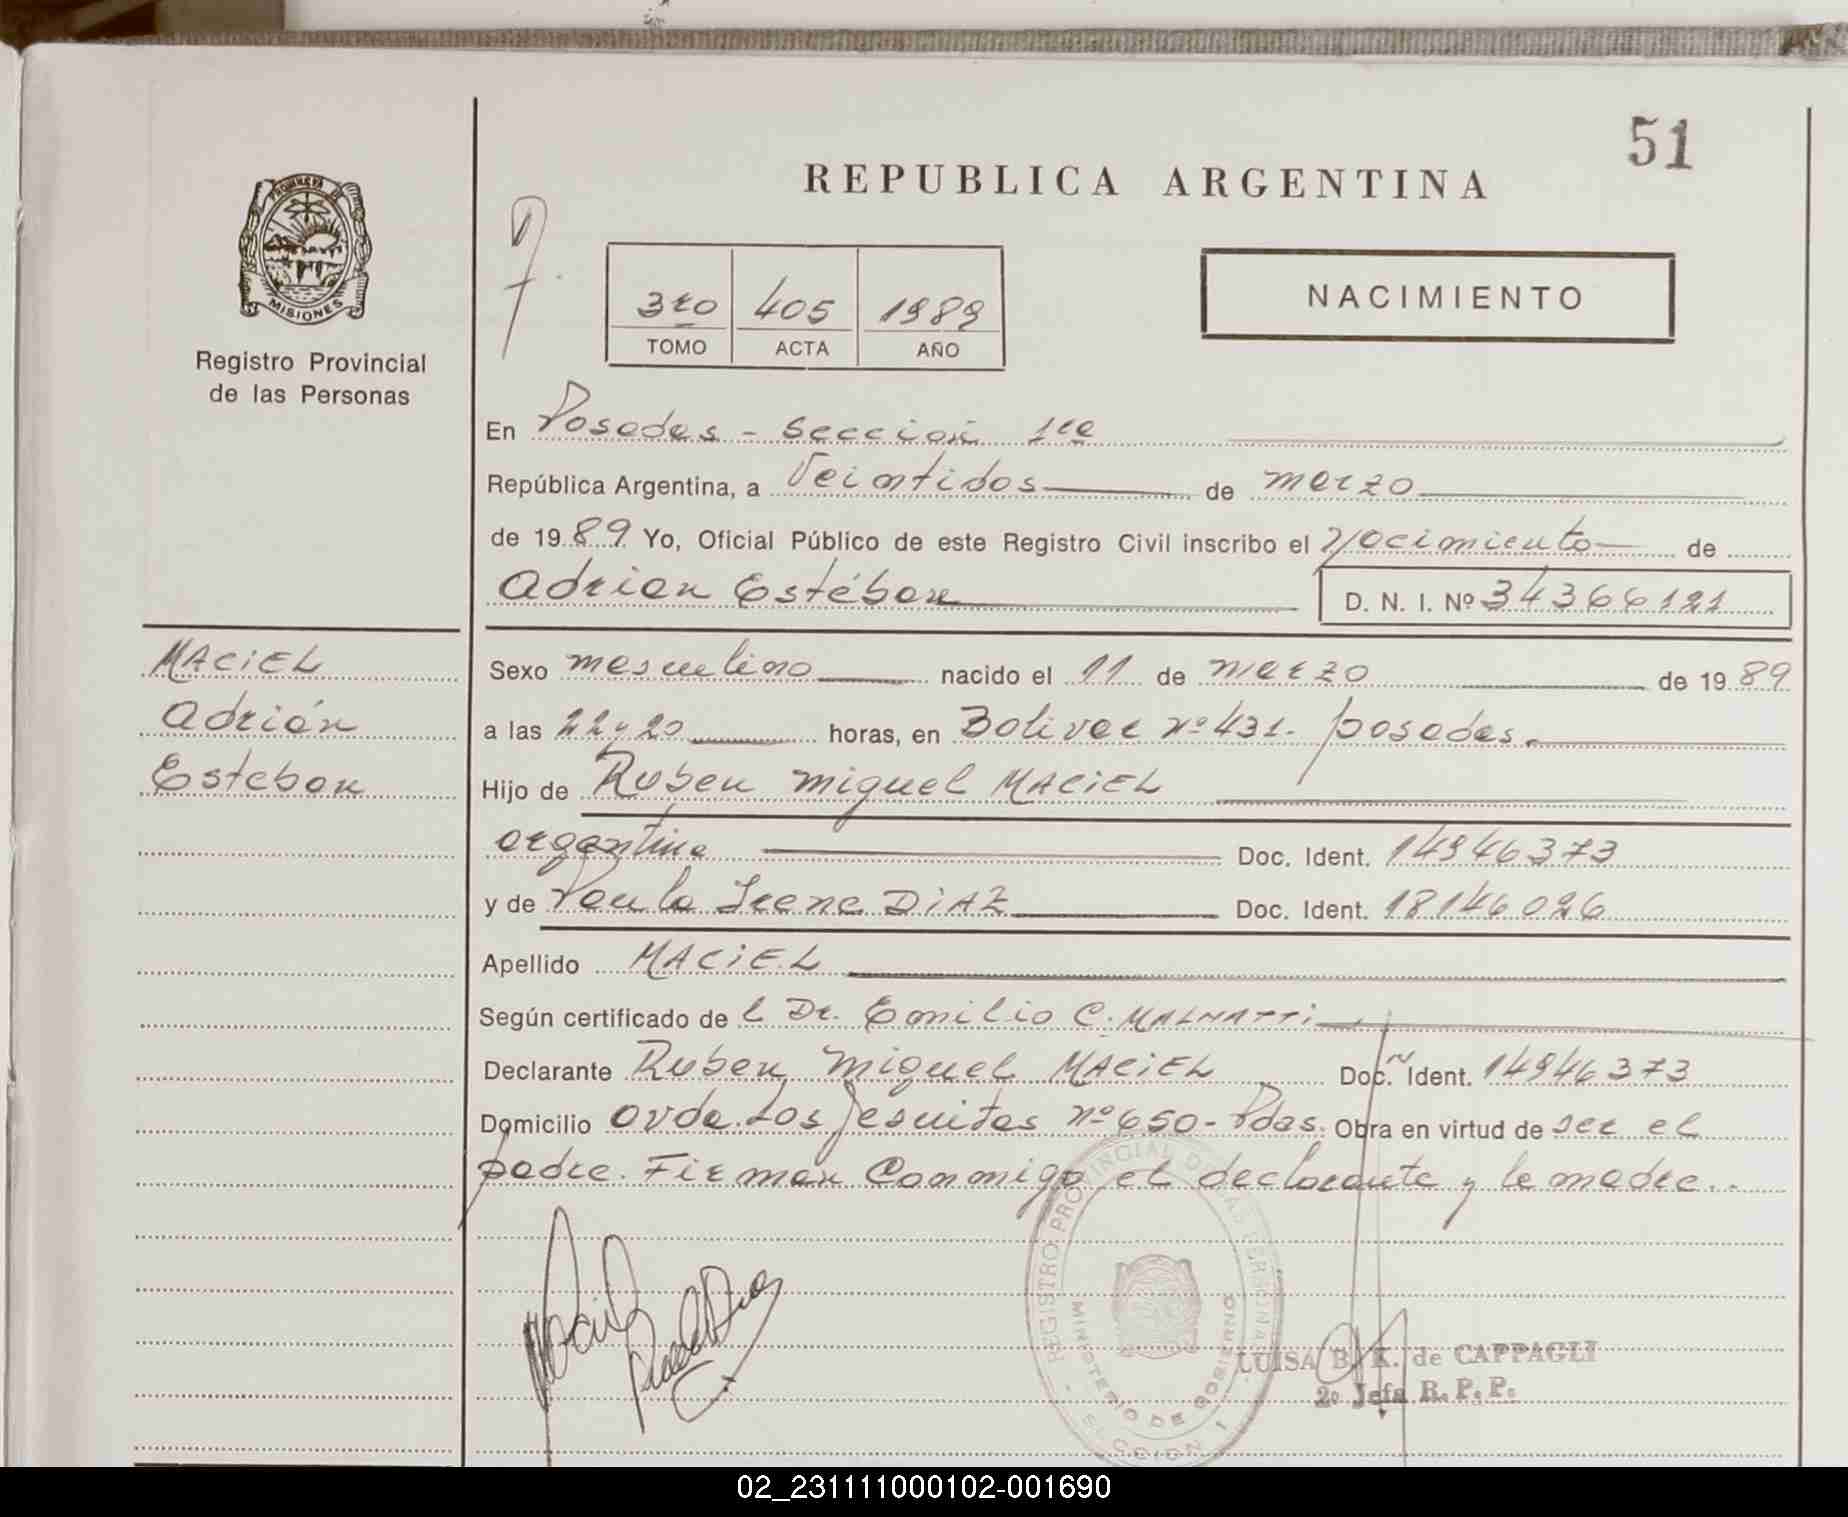 51
REPUBLICA ARGENTINA
PROVINCIA
MISIONES
Registro Provincial
de las Personas
3ro 405 1989
TOMO ACTA AÑO
NACIMIENTO
En Posadas - Sección 1ra
República Argentina, a Veintidos de marzo
de 1989 Yo, Oficial Público de este Registro Civil inscribo el Nacimiento de
Adrian Estéban D. N. I. Nº 34366121
MACIEL
Adrián
Esteban
Sexo masculino nacido el 11 de marzo de 1989
a las 22 y 20 horas, en Bolivar nº 431. posadas.
Hijo de Ruben Miguel MACIEL
argentina Doc. Ident. 14946373
y de Paula Irene DIAZ Doc. Ident. 18146026
Apellido MACIEL
Según certificado de l Dr. Emilio C. MALNATTI
Declarante Ruben Miguel MACIEL Doc. Ident. 14946373
Domicilio Avda. Los Jesuitas nº 650 - Pdas. Obra en virtud de ser el
padre. Firman Conmigo el declarante y la madre..
REGISTRO PROVINCIAL DE LAS PERSONAS
MINISTERIO DE GOBIERNO
SECCION 1
LUISA B. K. de CAPPAGLI
2º Jefa R. P. P.
02_231111000102-001690